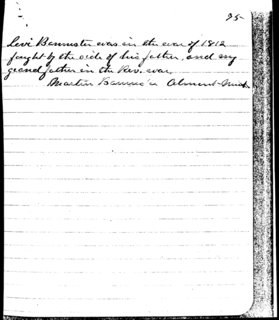 25-
Levi Bannister was in the war of 1812
fought by the side of his father, and my
grandfather in the Rev. war,
Martin Almont